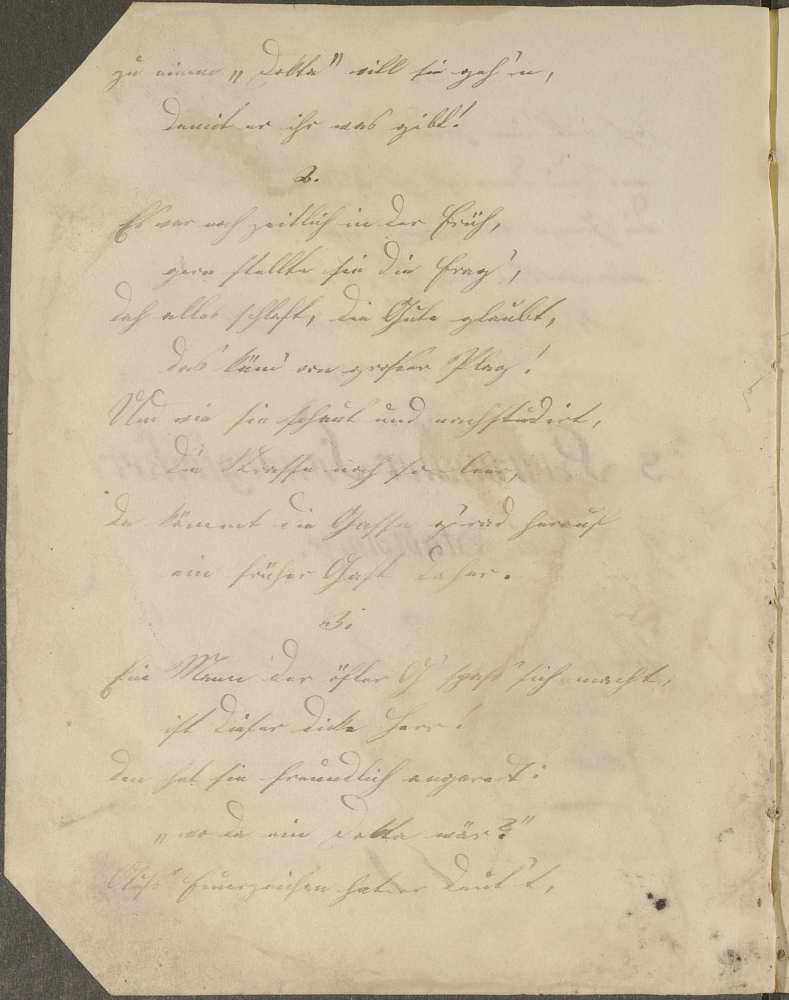 zu einem „Dokta" will sie geh'n,
damit er ihr was gibt!
2.
Es war noch zeitlich in der Früh,
gern stellte sie die Frag',
doch alles schlaft, die Gute glaubt,
das käm' von großer Plag!
Und wie sie schaut und nachstudirt,
die Strasse noch so leer,
da kömmt die Gasse g'rad herauf
ein früher Gast daher.
3.
Ein Mann der öfter G'spass sich macht,
ist dieser dicke Herr!
den hat sie freundlich angered't:
„wo da ein Dokta wär?"
Auf's hat er deut't,